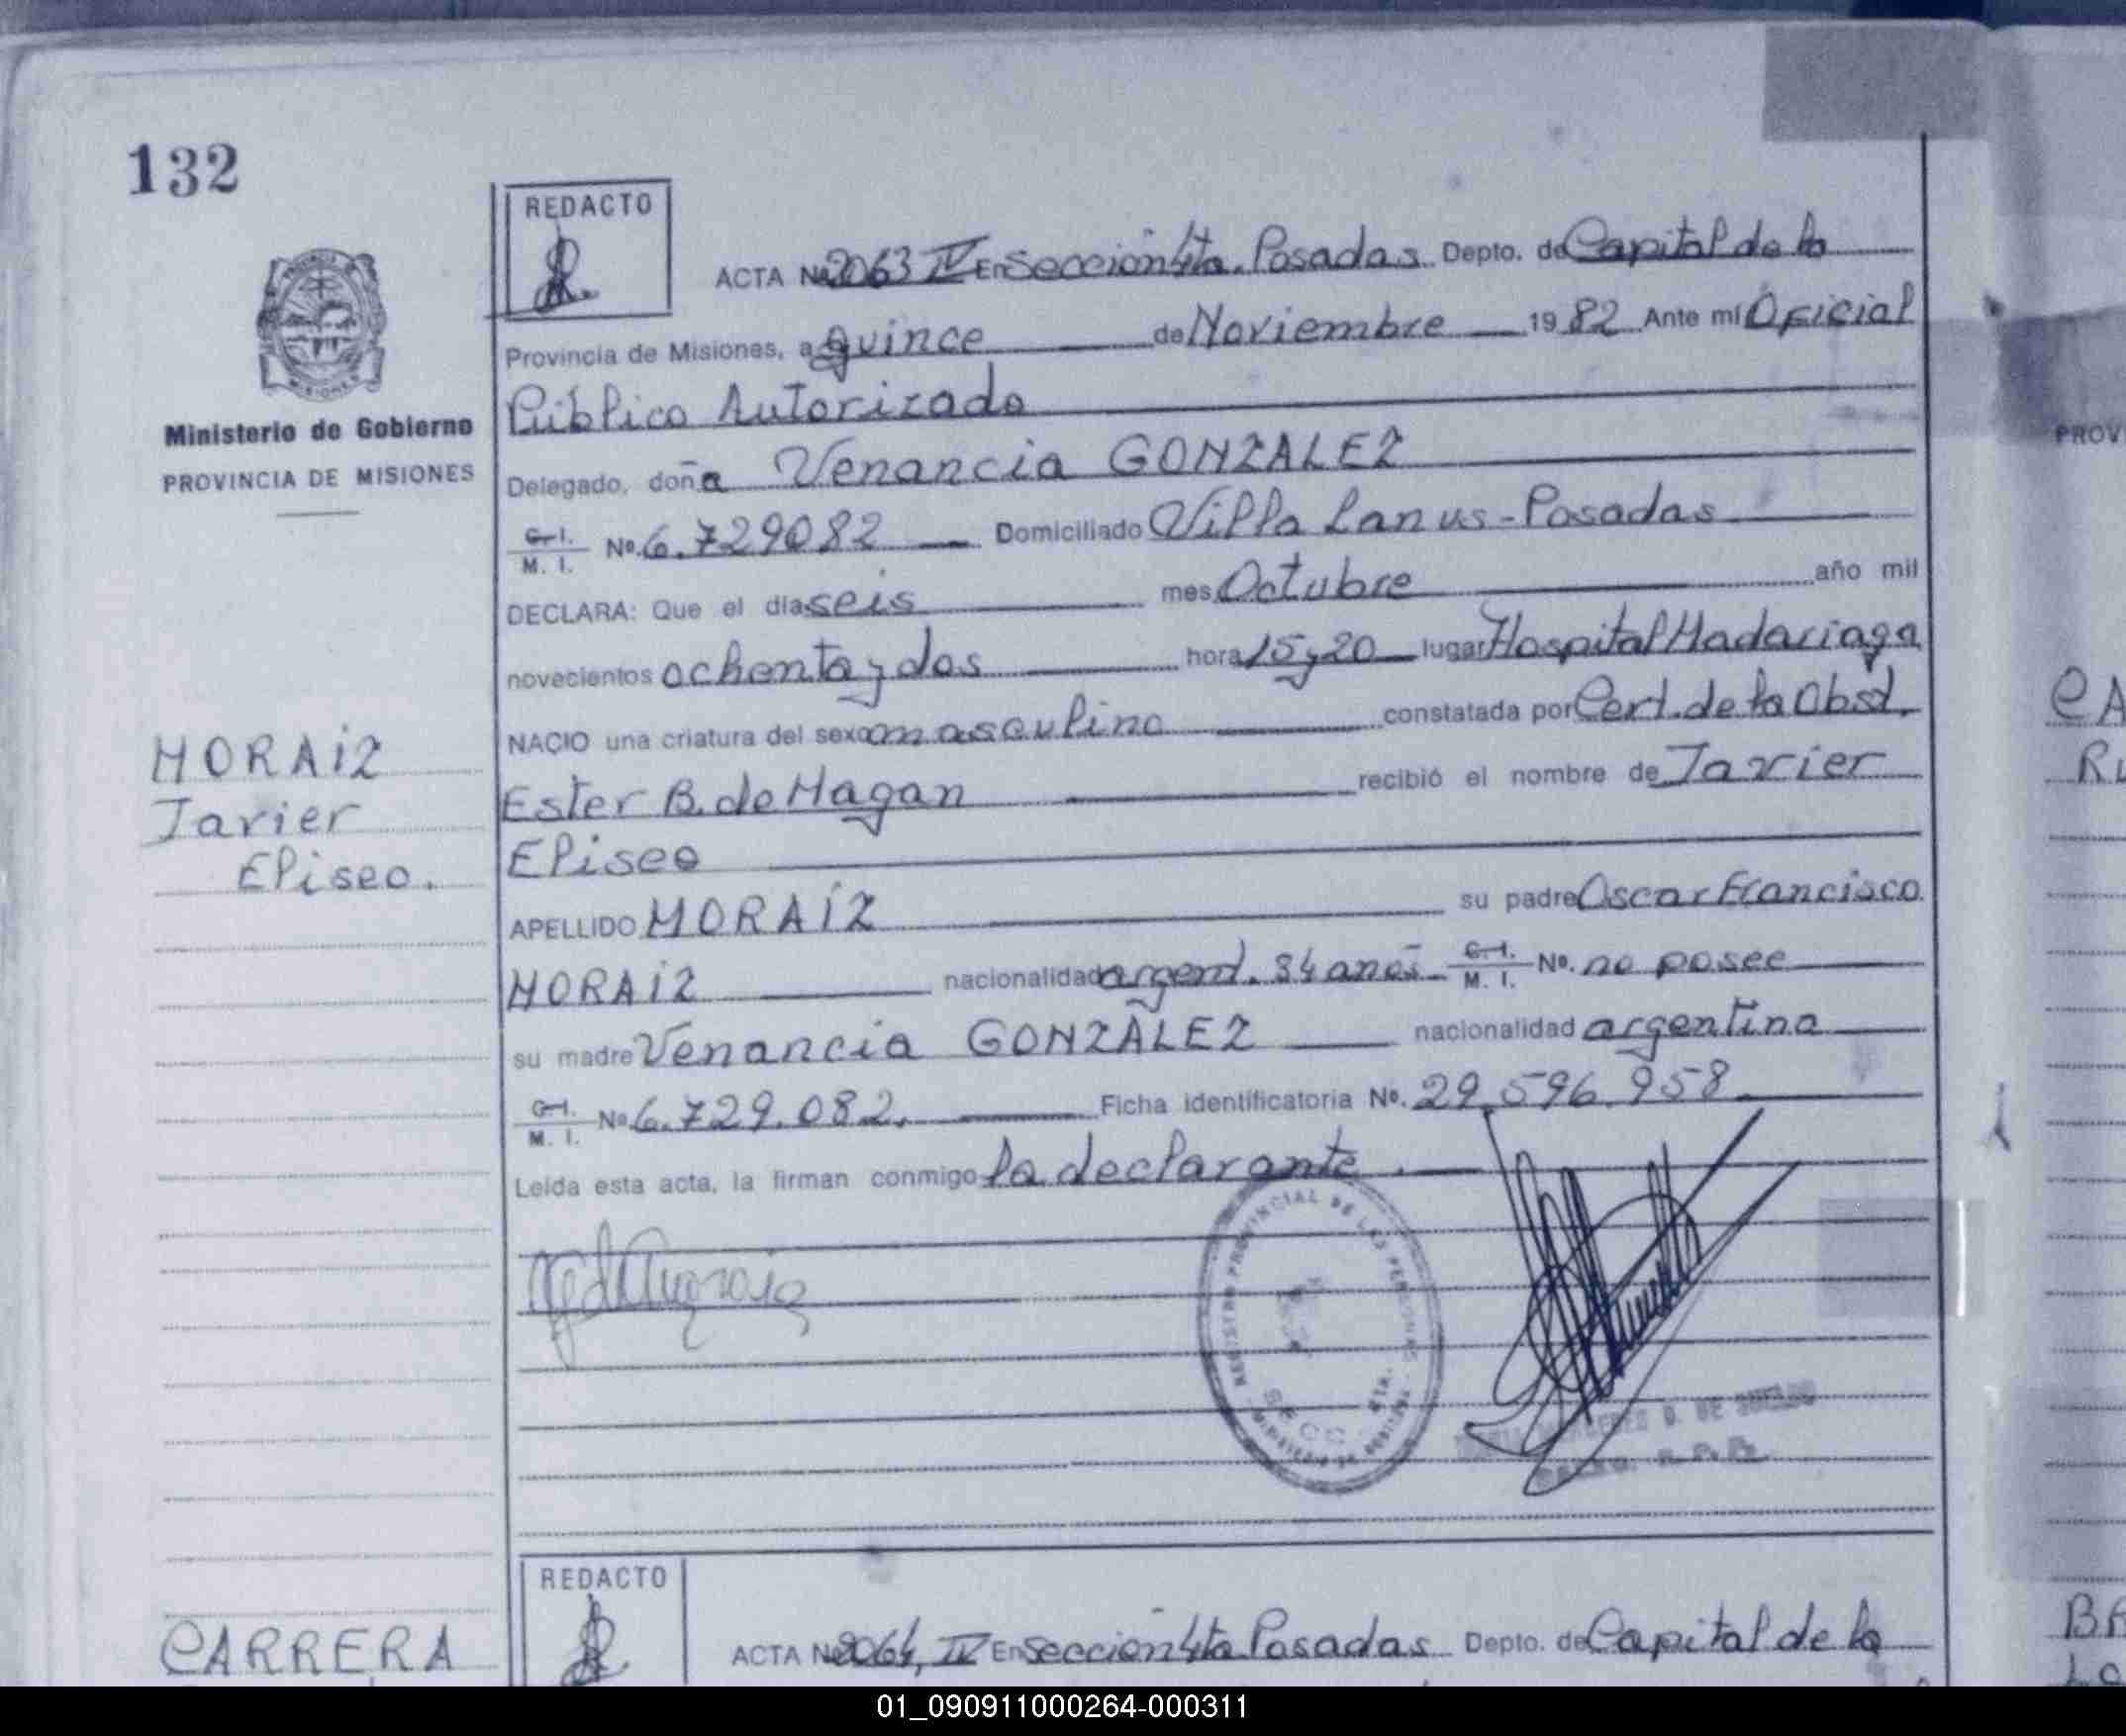 132
REDACTO
ACTA Nº 2063 IV En Sección 4ta. Posadas Depto. de Capital de la
Provincia de Misiones, a quince de Noviembre 1982 Ante mí Oficial
Público Autorizado
Ministerio de Gobierno
PROVINCIA DE MISIONES
Delegado, doña Venancia GONZALEZ
C. I. M. I. Nº 6.729082 Domiciliado Villa Lanus - Posadas
DECLARA: Que el día seis mes Octubre año mil
novecientos ochenta y dos hora 15 y 20 lugar Hospital Madariaga
NACIO una criatura del sexo masculino constatada por Cert. de la Obst.
MORAIZ
Javier
Eliseo.
Ester B. de Magan recibió el nombre de Javier
Eliseo
APELLIDO MORAÍZ su padre Oscar Francisco
MORAIZ nacionalidad argent. 34 años C. I. M. I. Nº. no posee
su madre Venancia GONZÁLEZ nacionalidad argentina
C. I. M. I. Nº 6.729.082. Ficha identificatoria Nº. 29.596.958
Leída esta acta, la firman conmigo la declarante.
REGISTRO PROVINCIAL DE LAS PERSONAS
SECC. 4TA.
REDACTO
CARRERA
ACTA Nº 2064, IV En Sección 4ta Posadas Depto. de Capital de la
PROV
CA
RU
BA
01_090911000264-000311